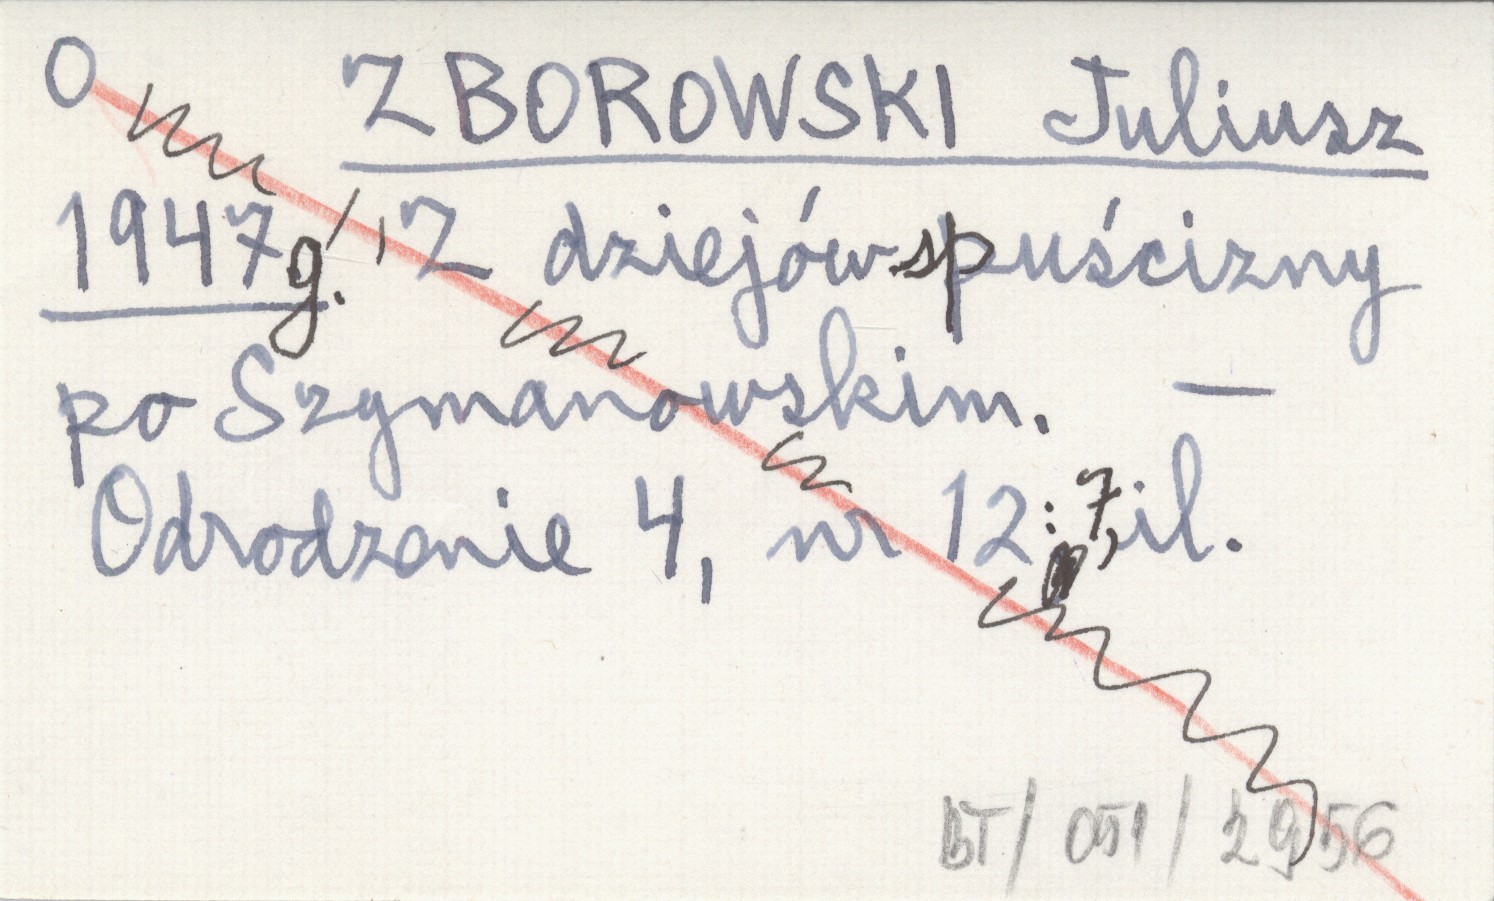 O ZBOROWSKI Juliusz
1947g. Z dziejów spuścizny
po Szymanowskim. —
Odrodzenie 4, nr 12: 7, il.
BT/051/2956